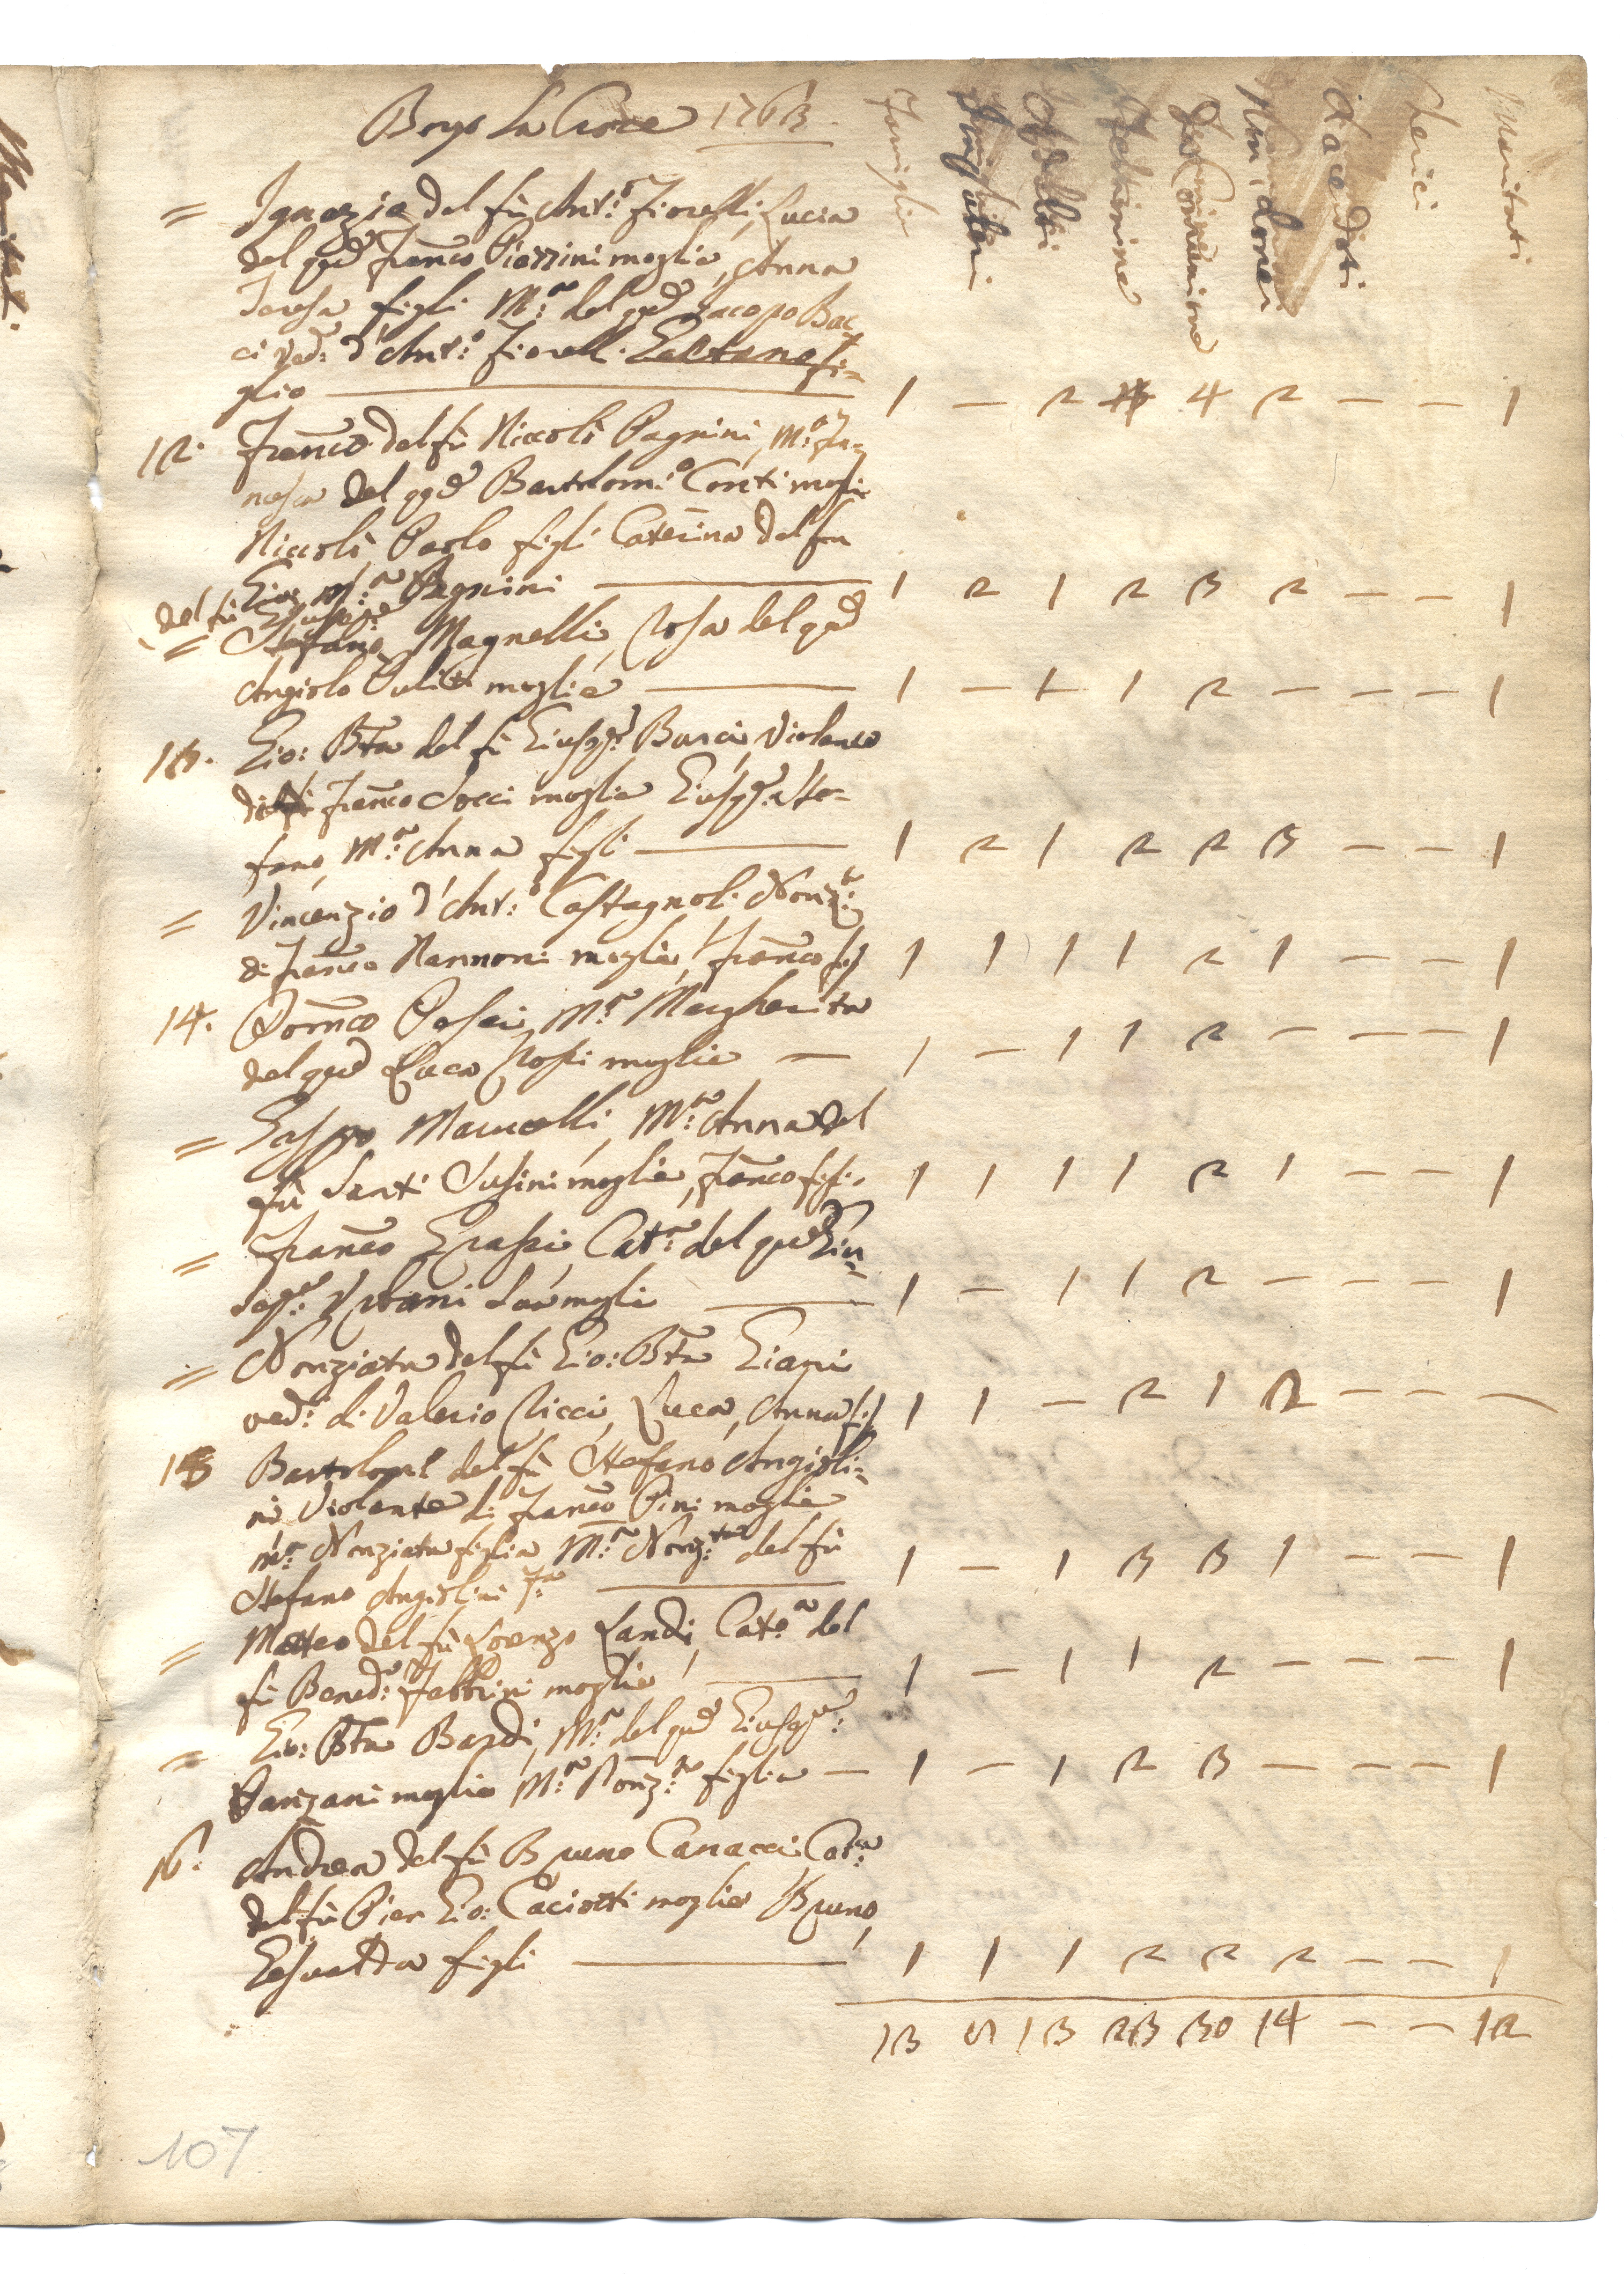 Borgo La Croce 1763.
Famiglie
Fanciulli
Adulti
Feminine
Da Comunione
Non idonei
Sacerdoti
Cerici
Maritati
= Ignazio del fù Ant.o Fiorelli, Lucia
del qd Franco Piazzini moglie, Anna
Teresa figli M.a del qd Jacopo Bac
ci ved: d'Ant.o Fiorelli. Gaetano fi=
glio — 1 — 2 4 2 — — 1
12. Franco del fù Niccolò Pagnini, M.a Fra=
nesca del qd Bartolom.o Conti mogli
Niccolò, Paolo figli Caterina del fu
Gio: M.a Pagnini — 1 2 1 2 3 2 — — 1
del fù Giusepe
= Stefano Magnelli, Rosa del qd
Angiolo moglie — 1 — 1 1 2 — — — 1
13. Gio: Bta del fù Giuspe Burci, Violante
di Franco Socci moglie Giuspe Ste=
fano, M.a Anna figli — 1 2 1 2 2 3 — — 1
= Vincenzio d'Ant.o Castagnoli Nonz.ta
di Franco Nannoni moglie, Franco fi 1 1 1 1 2 1 — — 1
14. Domco M.a Margherita
del qd Luca Rossi moglie — 1 — 1 1 2 — — — 1
= Gaspo Marucelli, M.a Anna del
fù Santi Susini moglie, Franco figli. 1 1 1 1 2 1 — — 1
= Franco Grassi, Cat.a del qd Giu=
sepe: Urbani Sua mogli — 1 — 1 1 2 — — — 1
= Nonziata del fù Gio: Bta Giani
ved: di Valerio Ricci, Luca, Anna fi 1 1 — 2 1 2 — — —
15 Bartolomeo del fù Stefano Angioli=
ni Violante di Franco Pini moglie
M.a Nonziata figlia M.a Nonz.ta del fù
Stefano Angiolini — 1 — 1 3 3 1 — — 1
= Matteo del fù Lorenzo Landi, Cat.a del
fù Bened.o Fabbrini moglie — 1 — 1 1 2 — — — 1
= Gio: Bta Bardi, M.a del qd Giuspe:
Vanzani moglie M.a Nonz.ta figlia — 1 — 1 2 3 — — — 1
16. Andrea del fù Bruno Canacci, Cat.a
del fù Pier Gio: Caciotti moglie Bruno,
Gesualda figli — 1 1 1 2 2 2 — — 1
13 13 23 30 14 — — 12
107